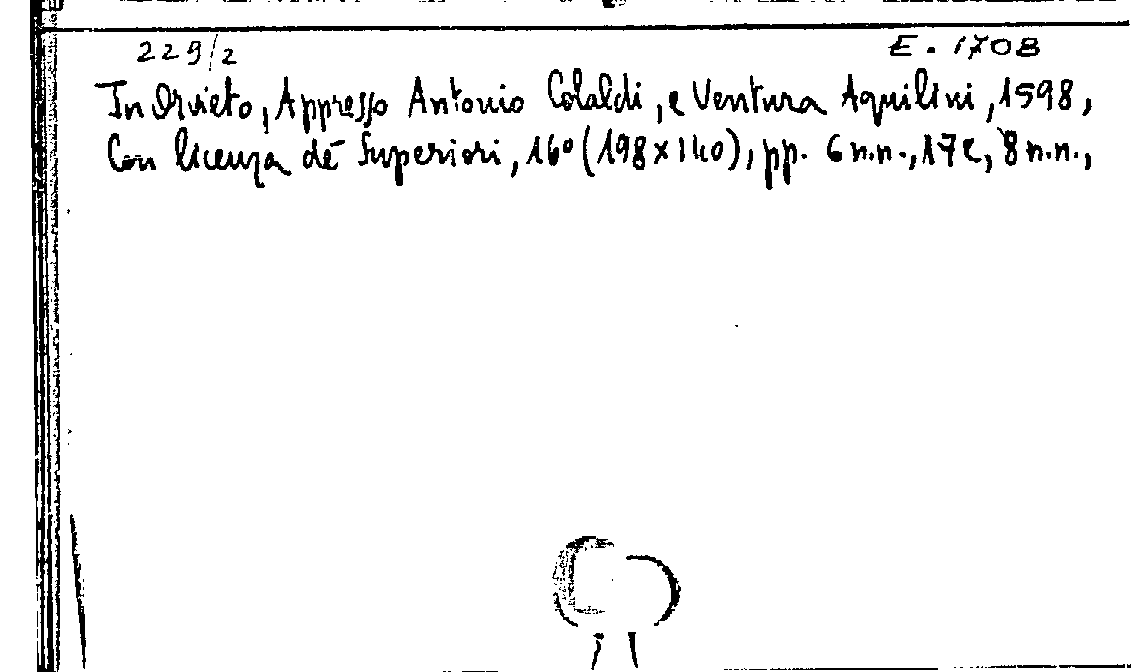 229/2 E. 1708
In Orvieto, Appresso Antonio Colaldi, e Ventura Aquilini, 1598,
Con licenza de' Superiori, 16° (198x140), pp. 6 n.n., 172, 8 n.n.,